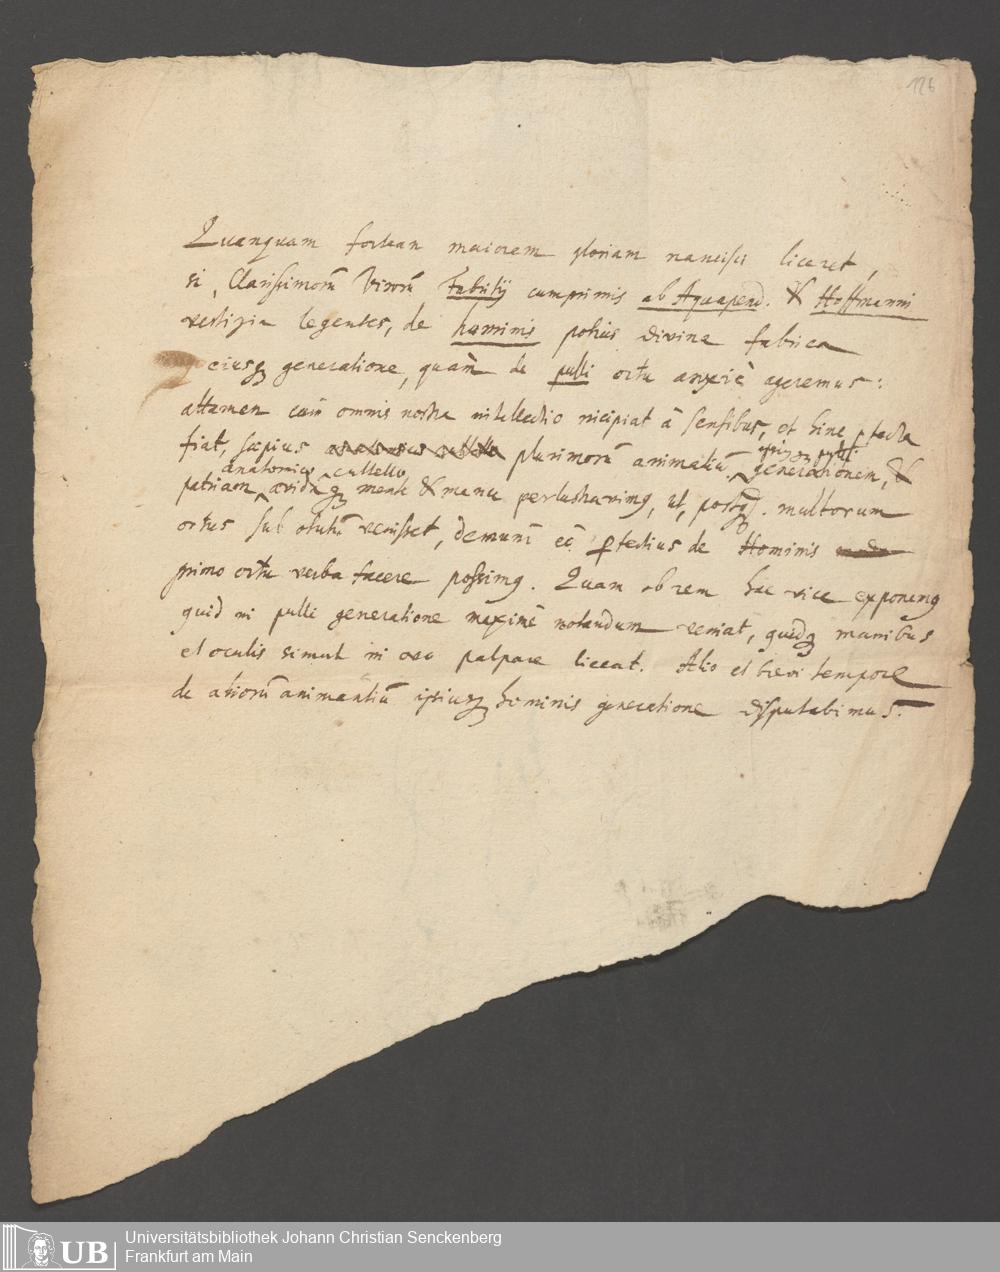 126
Quanquam forsan maiorem gloriam nancisci liceret,
si, Clarissimorũ Virorũ Fabritij cumprimis ab Aquapend. & Hoffmanni
vestigia legentes, de hominis potius divina fabrica
eiusq; generatione, quàm de pulli ortu anxiè ageremus:
attamen cùm omnis nostra intellectio incipiat â sensibus, et hinc pfecta
fiat, sæpius plurimorũ animatiũ generationem, &
anatomico cultello
patriam, avidâq; mente & manu perlustravimq, ut, postq̃. multorum
ortus sub obtutũ venisset, demum eò pfectius de Hominis
primo ortu verba facere possimq. Quam obrem hac vice exponemq
quid in pulli generatione maximè notandum veniat, quidq; manibus
et oculis simul in ovo palpare liceat. Alio et brevi tempore
de aliorũ animantiũ ipsiusq; hominis generatione disputabimus.
UB
Universitätsbibliothek Johann Christian Senckenberg
Frankfurt am Main